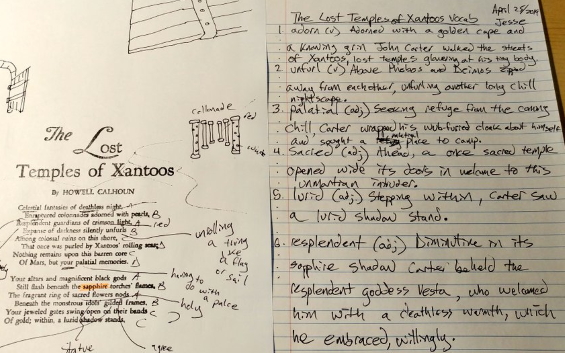 The Lost
Temples of Xantoos
By HOWELL CALHOUN
Celestial fantasies of deathless night, A
Enraptured colonnades adorned with pearls, B
Resplendent guardians of crimson light, A
Expanse of darkness silently unfurls B
Among colossal ruins on this shore, C
That once was purled by Xantoos' rolling seas; D
Nothing remains upon this barren core C
Of Mars, but your palatial memories. D
Your altars and magnificent black gods A
Still flash beneath the sapphire torches' flames, B
The fragrant ring of sacred flowers nods A
Beneath the monstrous idols' gilded frames. B
Your jeweled gates swing open on their bands C
Of gold; within, a lurid shadow stands. C
collonade
red
unrolling
a thing
like
a flag
or sail
having to
do with
a palace
holy
statue
April 28/2019
The Lost Temples of Xantoos Vocab Jesse
1. adorn (v) Adorned with a golden cape and
a knowing grin John Carter walked the streets
of Xantoos, lost temples glowering at his tiny body.
2. unfurl (v) Above Phobos and Deimos zipped
away from eachother, unfurling another long chill
nightscape.
3. palatial (adj) Seeking refuge from the coming
chill, Carter wrapped his wub-furred cloak about himself
and sought a palatial place to camp.
4. Sacred (adj) Ahead, a once sacred temple
opened wide its doors in welcome to this
unmartian intruder.
5. lurid (adj) Stepping within, Carter saw
a lurid shadow stand.
6. resplendent (adj) Diminutive in its
sapphire shadow Carter beheld the
resplendent goddess Vesta, who welcomed
him with a deathless warmth, which
he embraced, willingly.